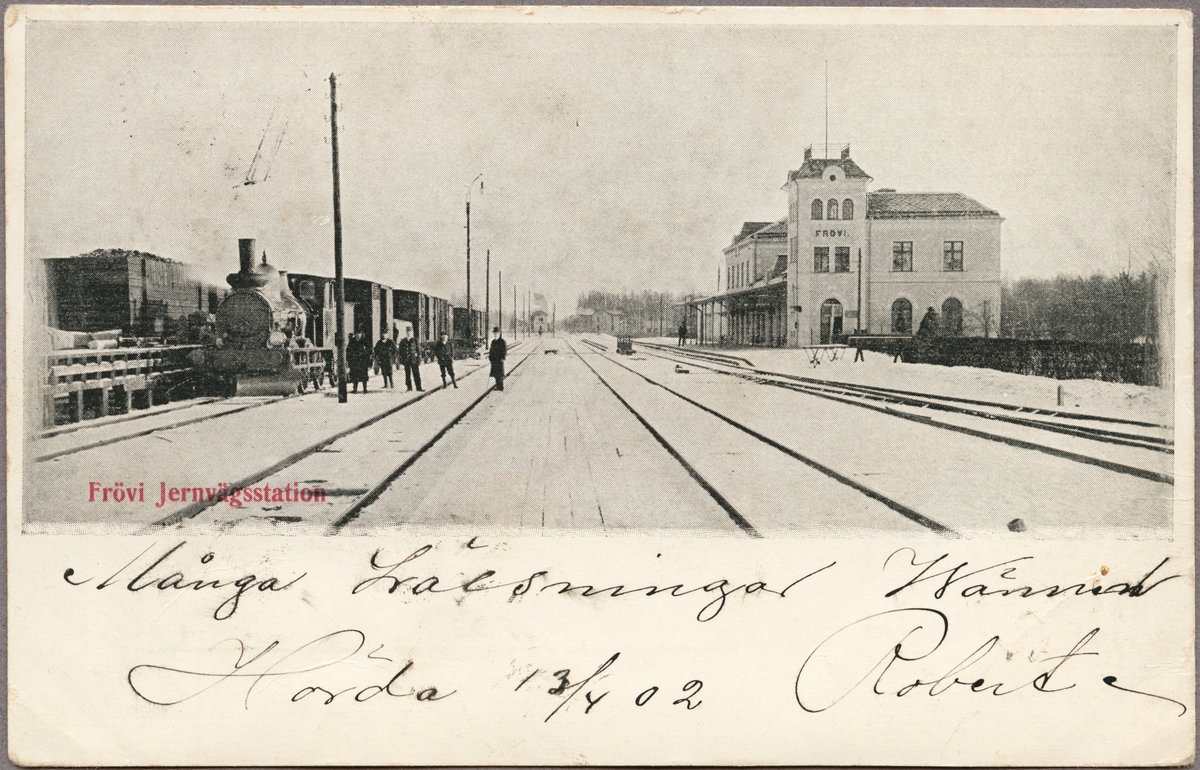 FRÖVI.
Frövi Jernvägsstation
Många Hälsningar Wännen
Hörda 13/4 02 Robert